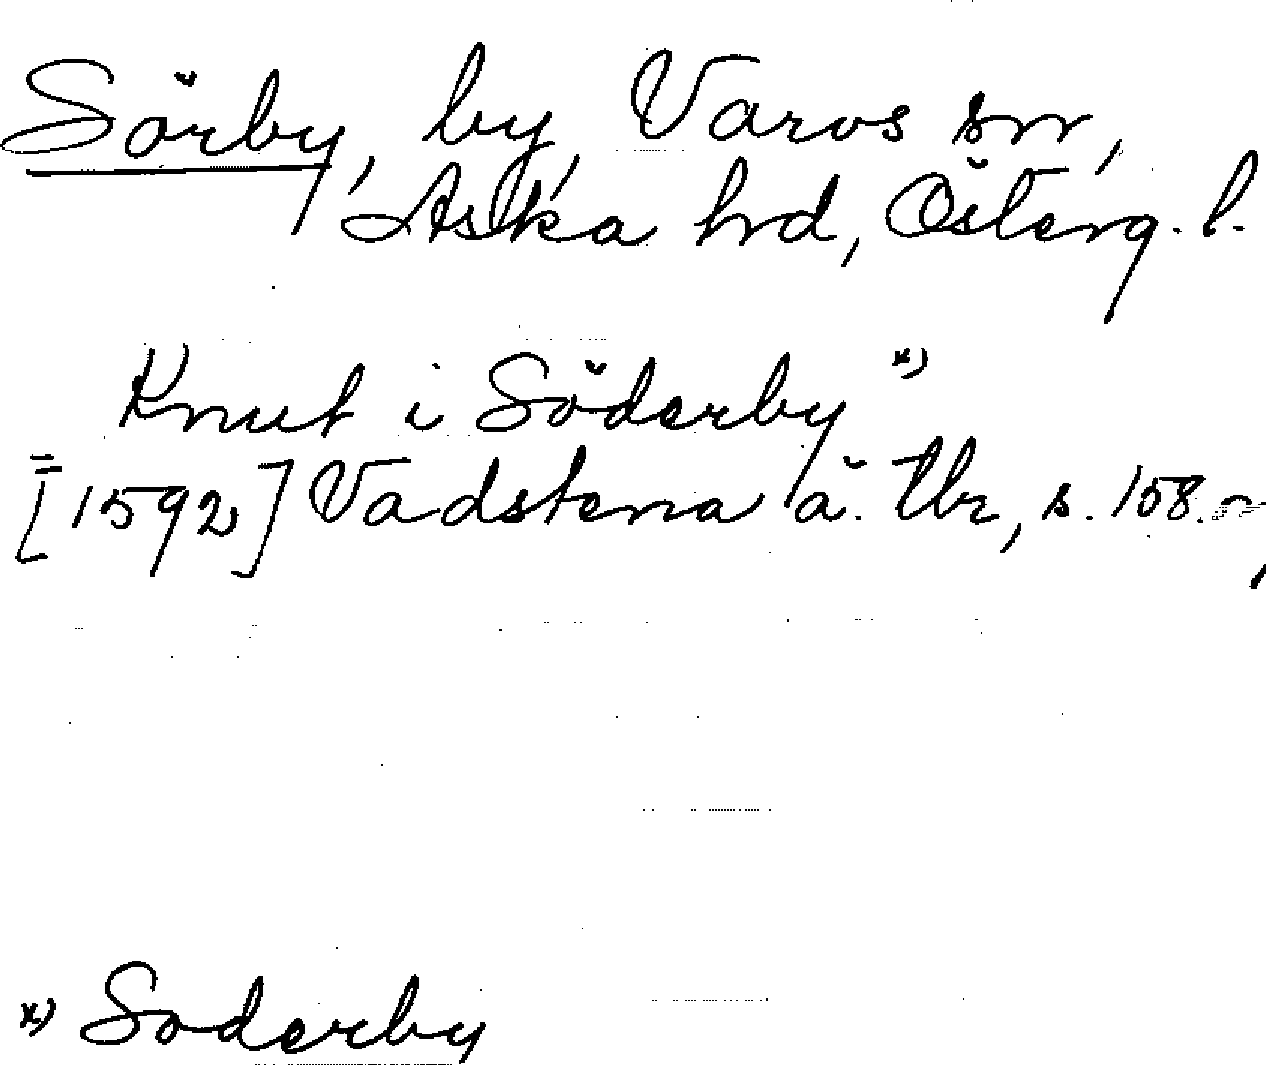 Sörby, by, Varvs sn,
Aska hrd, Österg. l.
Knut i Söderby *)
[1592] Vadstena ä. tbr, s. 158.
*) Soderby